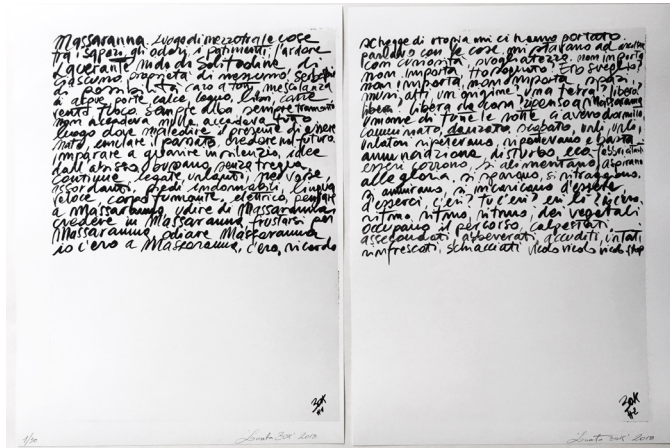 Massaranna. Luogo di mezzo tra le cose
tra i sapori, gli odori, i patimenti, l'ardore
nudo di solitudine di
ciascuno, proprietà di nessuno
di possibilità mescolanza
di alghe, porte, calce, legno, carne
vento, fuoco, sangue alba sempre
non accadeva nulla accadeva tutto
luogo dove maledire il presente di essere
nato, emulare il passato, credere nel futuro
imparare a guarire in silenzio, idee
dall'abisso, bussano senza tregua
continue, legate, volanti, perverse
assordanti, piedi indomabili, lingua
veloce, corpo fumante, elettrico, pensare
a Massaranna, udire di Massaranna
credere in Massaranna, frustare
Massaranna, odiare Massaranna
io c'ero a Massaranna, c'ero, ricordo
30K
1/20
2013
schegge di utopia mi ci hanno portato
parlavo con le cose, mi stavano ad
con curiosità non importa
non importa, Ho sognato? Ero sveglio?
non importa, non importa, spazi,
muri, atti, un'origine? una terra? libera?
libera, libera da cosa, ripenso a Massaranna
umane di tutte le notti, avevo dormito,
camminato, danzato, urli, urli,
ripetevano, ripetevano e basta
disturbo eco
esseri corrono, si alimentano, aspirano
alla gloria, si sparano, si ritraggono,
si ammirano, si incaricano d'essere
d'esserci c'eri? tu c'eri? eri lì?
ritmo, ritmo, ritmo, dei vegetali
occupano il percorso, calpestati,
assecondati, abbeverati, accuditi,
rinfrescati, schiacciati vicolo vicolo vicolo, stop
30K
2013